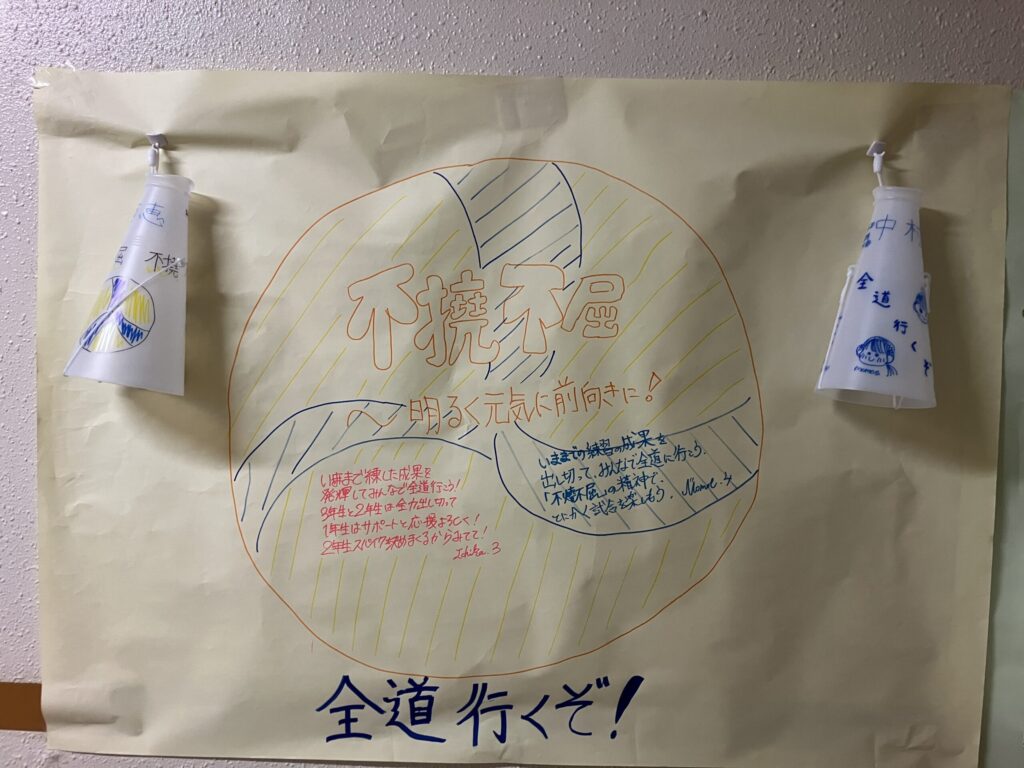 不撓
全
道
行
く
ぞ
momoe
不撓不屈
〜明るく元気に前向きに!
発揮してみんなで全道行こう!
3年生と2年生は全力出し切って
1年生はサポートと応援よろしく!
2年生スパイク決めまくるからみてて!
いままでの練習の成果を
出し切って、みんなで全道に行こう。
「不撓不屈」の精神で、
とにかく試合を楽しもう。
全道行くぞ!